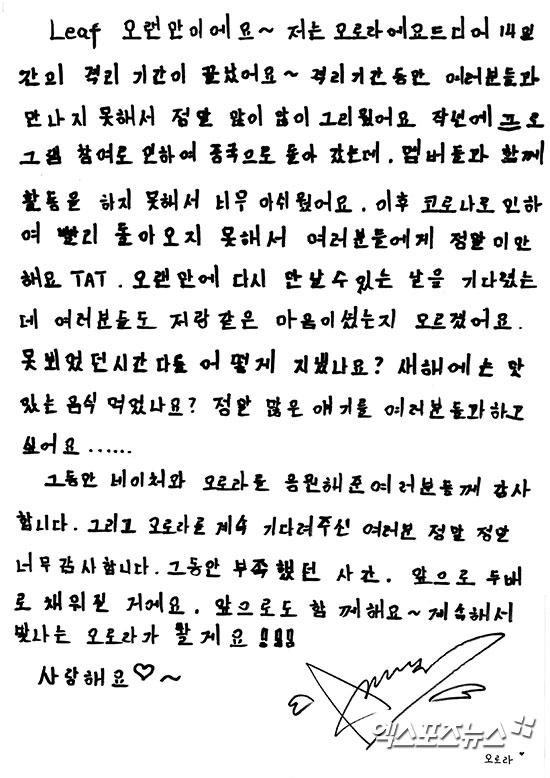 Leaf 오랜만이에요~ 저는 오로라에요드디어 14일
간의 격리 기간이 끝났어요~ 격리기간동안 여러분들과
만나지 못해서 정말 많이 많이 그리웠어요 작년에 프로
그램 참여로 인하여 중국으로 돌아 갔는데, 멤버들과 함께
활동을 하지 못해서 너무 아쉬웠어요. 이후 코로나로 인하
여 빨리 돌아오지 못해서 여러분들에게 정말미안
해요 TAT. 오랜만에 다시 만날수있는 날을 기다렸는
데 여러분들도 저랑같은 마음이셨는지 모르겠어요.
못 뵈었던시간 다들 어떻게 지냈나요? 새해에는 맛
있는 음식 먹었나요? 정말 많은 얘기를 여러분들과하고
싶어요 ......
그동안 네이처와 오로라를 응원해준여러분들께 감사
합니다. 그리고 오로라를 계속 기다려주신 여러분 정말 정말
너무감사합니다. 그동안 부족했던 시간, 앞으로 두배
로 채워질 거에요. 앞으로도 함께해요~ 계속해서
빛나는 오로라가 될게요 !!!
사랑해요♡~
엑스포츠뉴스
오로라 ♥